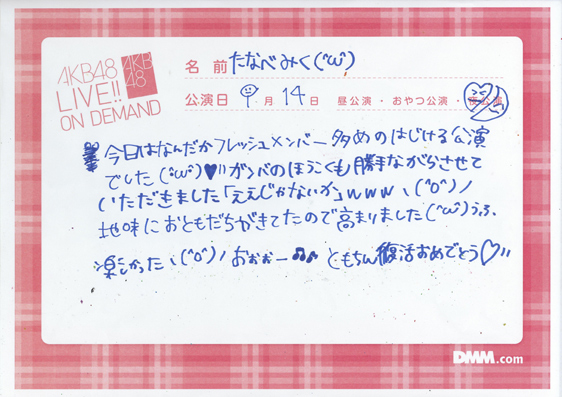 AKB48
LIVE!!
ON DEMAND
AKB
48
名 前 たなべみく(´ω`)
公演日 9 月 14 日 昼公演・おやつ公演・夜公演
今日はなんだかフレッシュメンバー多めのはじける公演
でした(´ω`)♥!! ガンバのほうこくも勝手ながらさせて
いただきました「ええじゃないか」www ヽ(^o^)ノ
地味におともだちがきてたので高まりました(´ω`)うふ、
楽しかったヽ(^o^)ノおぉぉー♫♪ ともちん復活おめでとう♡!!
DMM.com